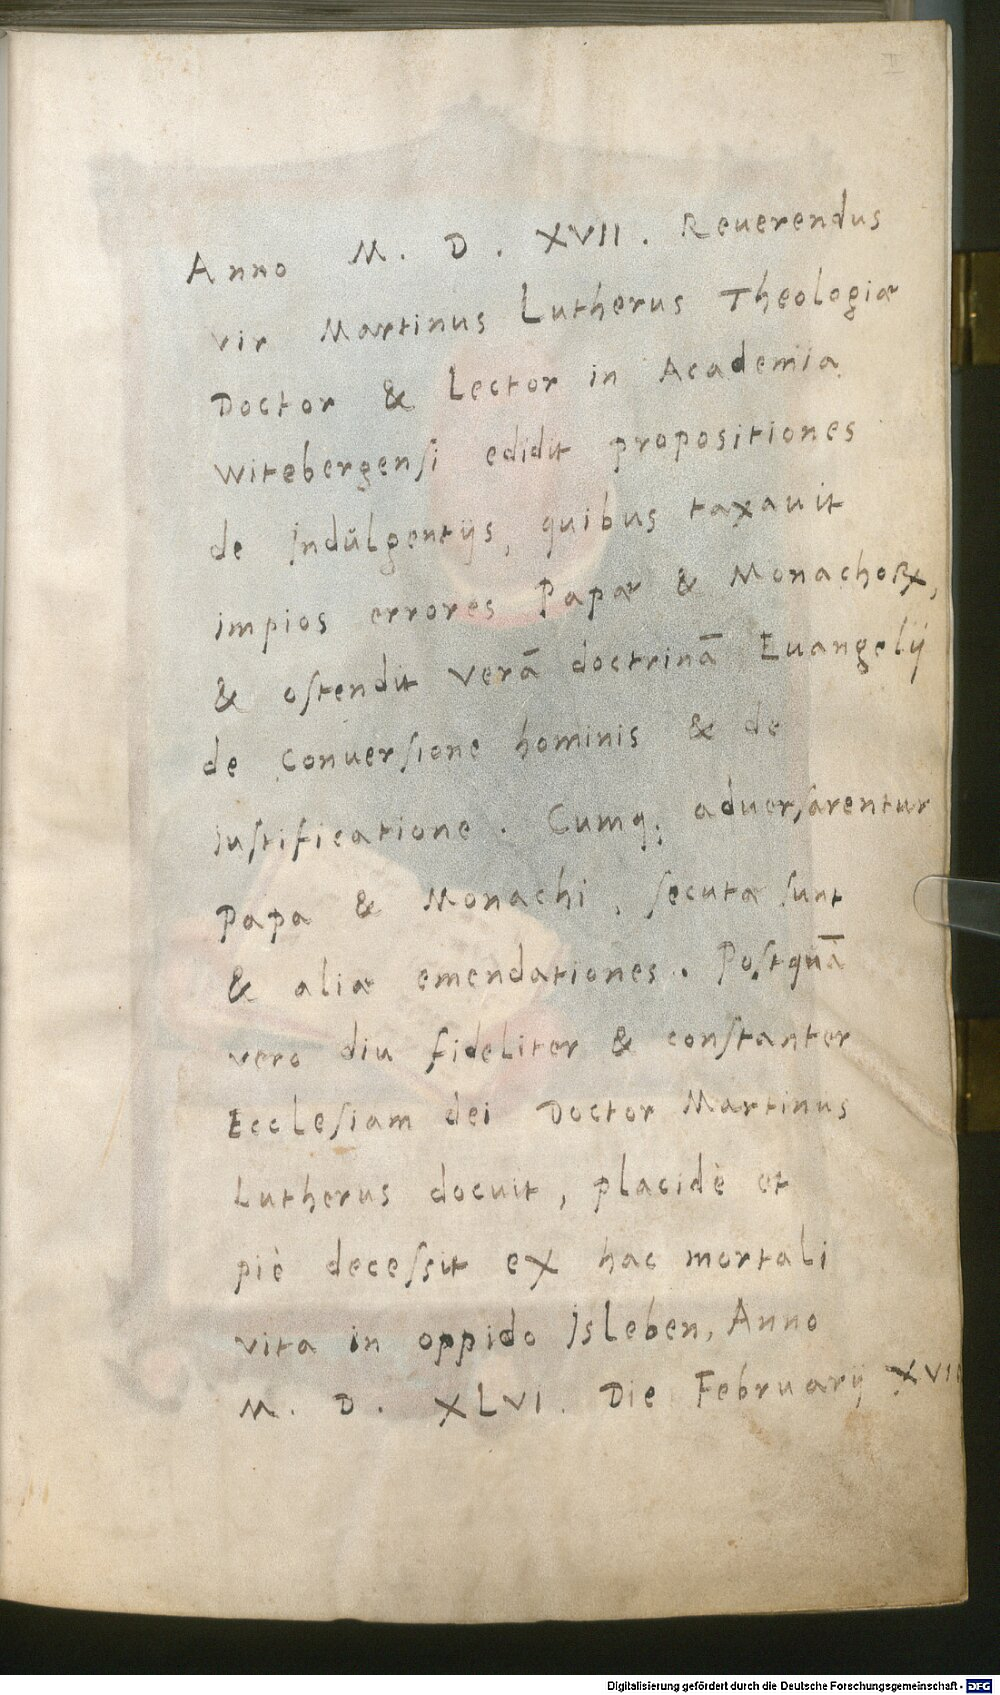 II
Anno M. D. XVII. Reuerendus
vir Martinus Lutherus Theologiæ
Doctor & Lector in Academia
Witebergenſi edidit propositiones
de Indŭlgentijs, quibus taxauit
impios errores Papæ & Monachoꝝ,
& oſtendit verā doctrinā Euangelij
de Conuerſione hominis & de
iuſtificatione. Cumq; aduerſarentur
Papa & Monachi, ſecutæ ſunt
& aliæ emendationes. Poſtquā
vero diu fideliter & conſtanter
Eccleſiam dei Doctor Martinus
Lutherus docuit, placidè et
piè deceſsit ex hac mortali
vita in oppido Isleben, Anno
M. D. XLVI. Die Februarij XVII
Digitalisierung gefördert durch die Deutsche Forschungsgemeinschaft - DFG